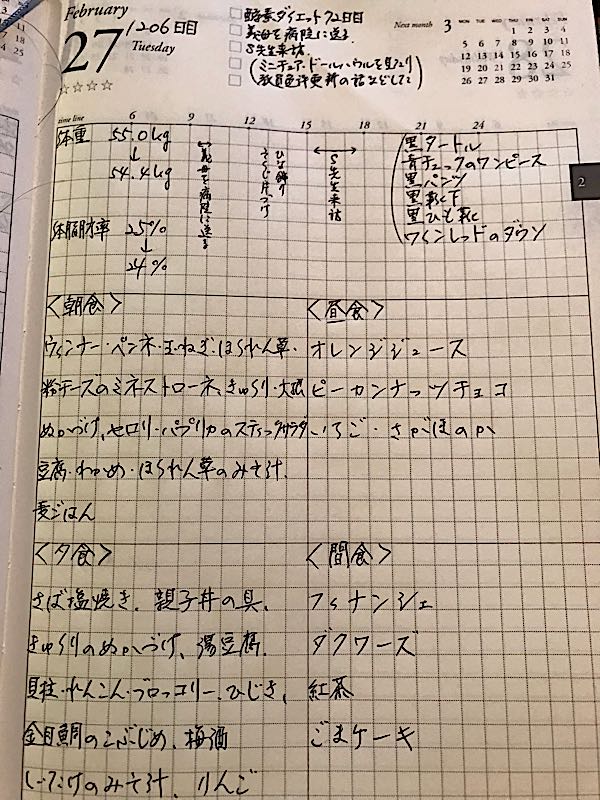 February
27
1206日目
Tuesday
☆☆☆☆
酵素ダイエット72日目
義母を病院に送る
S先生来訪
(ミニチュア・ドールハウスを見たり
教員免許更新の話などして)
Next month 3
MON TUE WED THU FRI SAT SUN
1 2 3 4
5 6 7 8 9 10 11
12 13 14 15 16 17 18
19 20 21 22 23 24 25
26 27 28 29 30 31
time line 6 9 12 15 18 21 24
体重 55.0kg
↓
54.4kg
体脂肪率 25%
↓
24%
義母を病院に送る
ひな飾り
片づけ
S先生来訪
黒タートル
青チェックのワンピース
黒パンツ
黒靴下
黒ひも靴
ワインレッドのダウン
2
<朝食>
ウィンナー・ペンネ・玉ねぎ・ほうれん草・
粉チーズのミネストローネ、きゅうり・大根
ぬかづけ、セロリ・パプリカのスティックサラダ
豆腐・わかめ・ほうれん草のみそ汁、
麦ごはん
<昼食>
オレンジジュース
ピーカンナッツチョコ
いちご・さがほのか
<夕食>
さば塩焼き、親子丼の具、
きゅうりのぬかづけ、湯豆腐、
貝柱・れんこん・ブロッコリー、ひじき、
金目鯛のこぶじめ、梅酒
しいたけのみそ汁、りんご
<間食>
フィナンシェ
ダクワーズ
紅茶
ごまケーキ